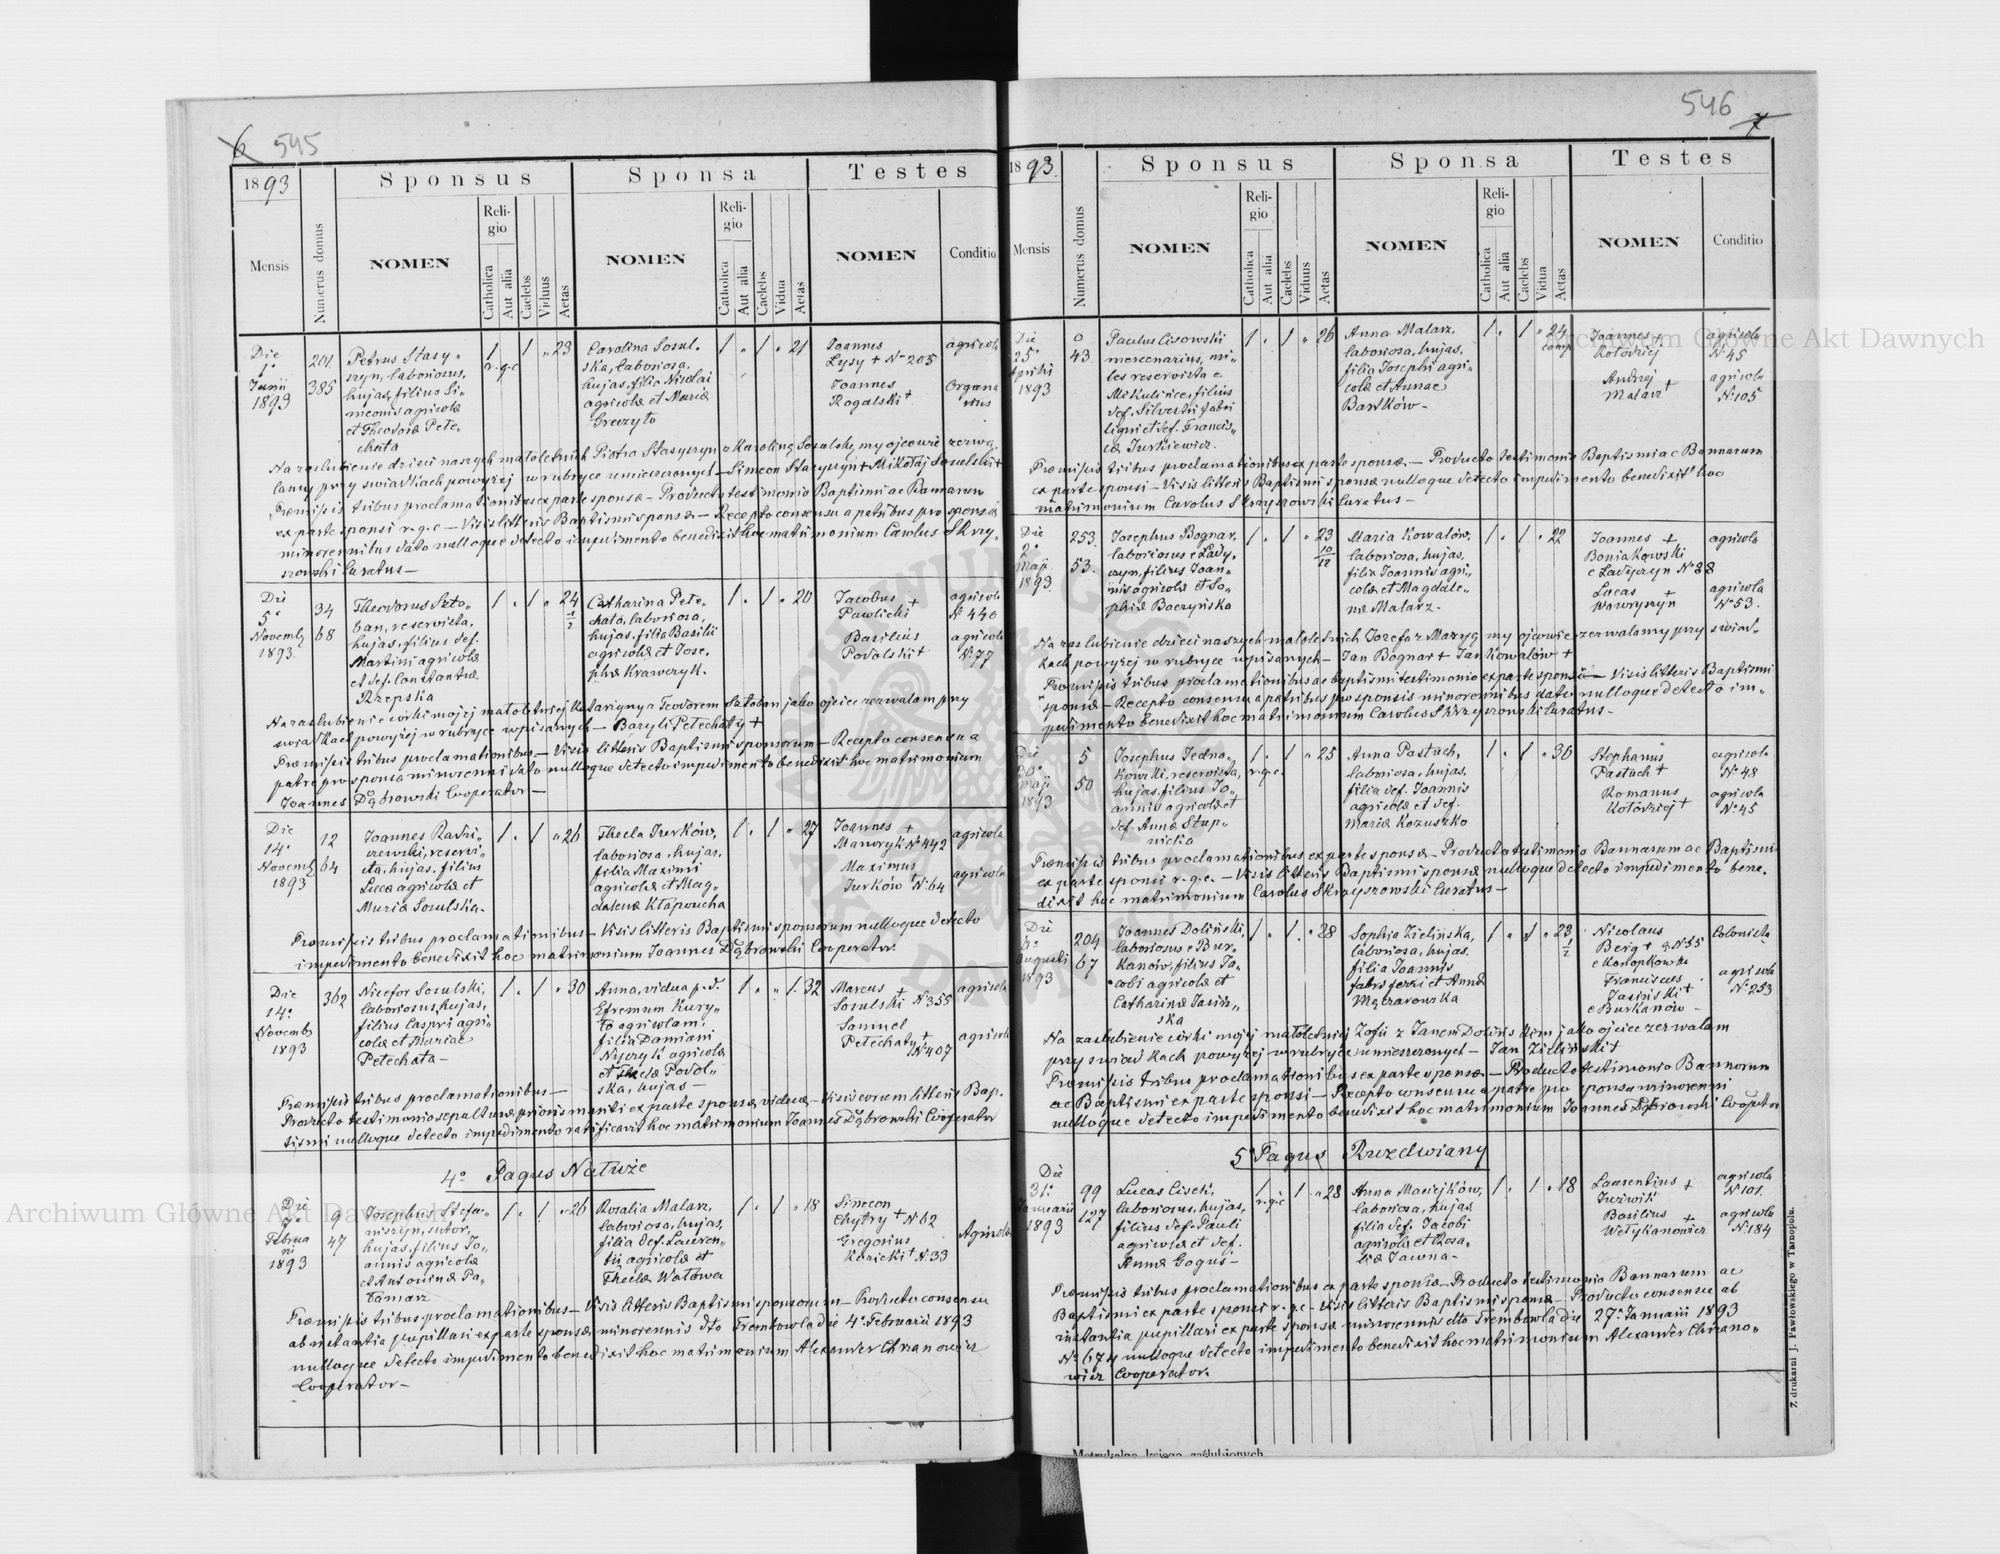 6 545
1893
Sponsus
Sponsa
Testes
Mensis
Numerus domus
NOMEN
Religio
Catholica
Aut alia
Caelebs
Viduus
Aetas
NOMEN
Religio
Catholica
Aut alia
Caelebs
Vidua
Aetas
NOMEN
Conditio
Die
1ª
Junii
1893
201
385
Petrus Stasy„
szyn, laboriosus,
hujas, filius Si„
meonis agricolæ
et Theodoræ Pete„
chata
1
r.g.c
1 „ 23
Carolina Sosul„
ska, laboriosa,
hujas, filia Nicolai
agricolæ et Mariæ
Greczyło
1 „ 1 „ 21
Joannes
Lysy + Nº 205
agricola
Joannes
Rogalski +
Organa
rius
Na zaślubienie dzieci naszych małoletnich Piotra Stasyszyn z Karoliną Sosulską my ojcowie zezwa„
lamy przy świadkach powyżej w rubryce umieszczonych – Simeon Stasyszyn + Mikołaj Sosulski +
Præmissis tribus proclamationibus ex parte sponsæ – Producto testimonio Baptismi ac Bannorum
ex parte sponsi r.g.c – Visis litteris Baptismi sponsæ – Recepto consensu a patribus pro sponsis
minorennibus dato nulloque detecto impedimento benedixit hoc matrimonium Carolus Skrzy„
szowski Curatus –
Die
5ª
Novemb
1893
34
68
Theodorus Szto„
ban, reservista,
hujas, filius def.
Martini agricolæ
et def. Constantiæ
Rzepska
1 . 1 „ 24 1/2
Catharina Pete„
chata, laboriosa,
hujas, filia Basilii
agricolæ et Jose„
phæ Krawczyk.
1 . 1 „ 20
Jacobus +
Pawlicki
agricola
Nº 440
Basilius
Podolski +
agricola
Nº 77
Na zaślubienie córki mojej małoletniej Katarzyny z Teodorem Sztoban jako ojciec zezwalam przy
świadkach powyżej w rubryce wpisanych – Bazyli Petechaty +
Præmissis tribus proclamationibus – Visis litteris Baptismi sponsorum – Recepto consensu a
patre pro sponsa minorenni dato nulloque detecto impedimento benedixit hoc matrimonium
Joannes Dąbrowski Cooperator –
Die
14ª
Novemb
1893
12
64
Joannes Radzi„
szewski, reservi„
sta, hujas, filius
Lucæ agricolæ et
Mariæ Sosulska.
1 . 1 „ 26
Thecla Jurków,
laboriosa, hujas,
filia Maximi
agricolæ et Mag„
dalenæ Kłapoucha
1 . 1 „ 27
Joannes +
Mawryk Nº 442
agricola
Maximus
Jurków + Nº 64
agricola
Præmissis tribus proclamationibus – Visis litteris Baptismi sponsorum nulloque detecto
impedimento benedixit hoc matrimonium Joannes Dąbrowski Cooperator.
Die
14ª
Novemb
1893
362
Nicefor Sosulski,
laboriosus, hujas,
filius Caspri agri„
colæ et Mariæ
Petechata –
1 . 1 „ 30
Anna, vidua p. d.
Efremum Kury„
ło agricolam,
filia Damiani
agricolæ
et Theclæ Podol„
ska, hujas –
1 „ „ 1. 32
Marcus +
Sosulski Nº 355
agricola
Samuel
Petechaty +
Nº 407
agricola
Præmissis tribus proclamationibus –
Producto testimonio sepulturæ prioris mariti ex parte sponsæ viduæ – Visis eorum litteris Bap„
tismi nulloque detecto impedimento ratificavit hoc matrimonium Joannes Dąbrowski Cooperator
4º Pagus Nałuże
Die
7ª
Februa
rii
1893
9
47
Josephus Stefa„
niszyn, sutor,
hujas, filius Jo„
annis agricolæ
et Antoninæ Pa„
łamarz
1 . 1 „ 26
Rosalia Malarz,
laboriosa, hujas,
filia def. Lauren„
tii agricolæ et
Theclæ Watowa
1 . 1 „ 18
Simeon
Chytry + Nº 62
Gregorius
Kozicki + Nº 33
Agricolæ
Præmissis tribus proclamationibus – Visis litteris Baptismi sponsorum – Producto consensu
ab instantia pupillari ex parte sponsæ minorennis dto Trembowla die 4ª Februarii 1893
nulloque detecto impedimento benedixit hoc matrimonium Alexander Chrzanowicz
Cooperator –
546 7
1893.
Sponsus
Sponsa
Testes
Mensis
Numerus domus
NOMEN
Religio
Catholica
Aut alia
Caelebs
Viduus
Aetas
NOMEN
Religio
Catholica
Aut alia
Caelebs
Vidua
Aetas
NOMEN
Conditio
Die
25ª
Aprilis
1893
0
43
Paulus Cisowski
mercenarius, mi„
les reservista e
Mikulińce, filius
def. Silvestri fabri
lignei et def. Francis„
cæ Jurkiewicz.
1 . 1 „ 26
Anna Malarz,
laboriosa, hujas,
filia Josephi agri„
colæ et Annæ
Bartków –
1. 1 „ 24
Joannes +
Kołodziej
agricola
Nº 45
Andrej
Malarz +
agricola
Nº 105
Præmissis tribus proclamationibus ex parte sponsæ – Producto testimonio Baptismi ac Bannorum
ex parte sponsi – Visis litteris Baptismi sponsæ nulloque detecto impedimento benedixit hoc
matrimonium Carolus Skrzyszowski Curatus –
Die
2ª
Maji
1893
253.
53.
Josephus Bognar,
laboriosus e Łady„
czyn, filius Joan„
nis agricolæ et So„
phiæ Baczyńska
1. 1 „ 23 10/12
Maria Kowalów,
laboriosa, hujas,
filia Joannis agri„
colæ et Magdale„
næ Malarz –
1 . 1 „ 22
Joannes +
Boniakowski
e Ładyczyn Nº 88
agricola
Lucas +
Wawryszyn
agricola
Nº 53.
Na zaślubienie dzieci naszych małoletnich Józefa z Maryą my ojcowie zezwalamy przy świad„
kach powyżej w rubryce wpisanych – Jan Bognar + Jan Kowalów +
Præmissis tribus proclamationibus ac baptismi testimonio ex parte sponsi – Visis litteris Baptismi
sponsæ – Recepto consensu a patribus pro sponsis minorennibus dato nulloque detecto im„
pedimento benedixit hoc matrimonium Carolus Skrzyszowski Curatus –
Die
20ª
Maji
1893
5
50
Josephus Jedna„
kowski, reservista,
hujas, filius Jo„
annis agricolæ et
def. Annæ Stup„
nicka
1.
r.g.c.
1 „ 25
Anna Pastuch,
laboriosa, hujas,
filia def. Joannis
agricolæ et def.
Mariæ Kozuszko
1 . 1 „ 30
Stephanus
Pastuch +
agricola
Nº 48
Romanus
Kołodziej +
agricola
Nº 45
Præmissis tribus proclamationibus ex parte sponsæ – Producto testimonio Bannorum ac Baptismi
ex parte sponsi r.g.c. – Visis litteris Baptismi sponsæ nulloque detecto impedimento bene„
dixit hoc matrimonium Carolus Skrzyszowski Curatus –
Die
Augusti
1893
204
67
Joannes Doliński,
laboriosus e Bur„
kanów, filius Ja„
cobi agricolæ et
Catharinæ Jasiń„
ska
1 . 1 . „ 28
Sophia Zielińska,
laboriosa, hujas,
filia Joannis
fabri ferri et Annæ
1 „ 1 „ 23 1/2
Nicolaus
Berg + Nº 55
e Konopkówka
Colonista
Franciscus
Jasiński +
e Burkanów –
agricola
Nº 253
Na zaślubienie córki mojej małoletniej Zofii z Janem Dolińskim jako ojciec zezwalam
przy świadkach powyżej w rubryce umieszczonych – Jan Zieliński +
Præmissis tribus proclamationibus ex parte sponsæ – Producto testimonio Bannorum
ac Baptismi ex parte sponsi – Recepto consensu a patre pro sponsa minorenni
nulloque detecto impedimento benedixit hoc matrimonium Joannes Dąbrowski Cooperator
5º Pagus Ruzdwiany
Die
31ª
Januarii
1893
99
127
Lucas Cisek,
laboriosus, hujas,
filius def. Pauli
agricolæ et def.
Annæ Goguś –
1
r.g.c
1 „ 28
Anna Maciejków,
laboriosa, hujas,
filia def. Jacobi
agricolæ et Rosa„
liæ Jawna –
1 . 1 „ 18
Laurentius +
agricola
Nº 101.
Basilius +
Wełykanowicz
agricola
Nº 184
Præmissis tribus proclamationibus ex parte sponsæ – Producto testimonio Bannorum ac
Baptismi ex parte sponsi r.g.c – Visis litteris Baptismi sponsæ – Producto consensu ab
instantia pupillari ex parte sponsæ minorennis dto Trembowla die 27ª Januarii 1893
Nº 674 nulloque detecto impedimento benedixit hoc matrimonium Alexander Chrzano„
wicz Cooperator.
Z drukarni J. Pawłowskiego w Tarnopolu.
Metrykalna księga zaślubionych
Archiwum Główne Akt Dawnych
Archiwum Główne Akt Dawnych